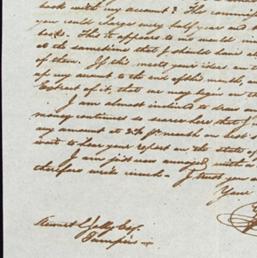 book with my account? The commission
you could charge every half year and
books. This to appears to me would
at the same time that I should have
of them. If this meets your ideas
up my account to the end of this month,
Extract of it, that we may begin on the
I am almost inclined to draw
money continues so scarce here that
my amount at 3 pr month on
want to hear your report on the state of
I am just now annoyed with a
therefore write much. I trust you
Your
Stewart Jolly Esq.
Tampico